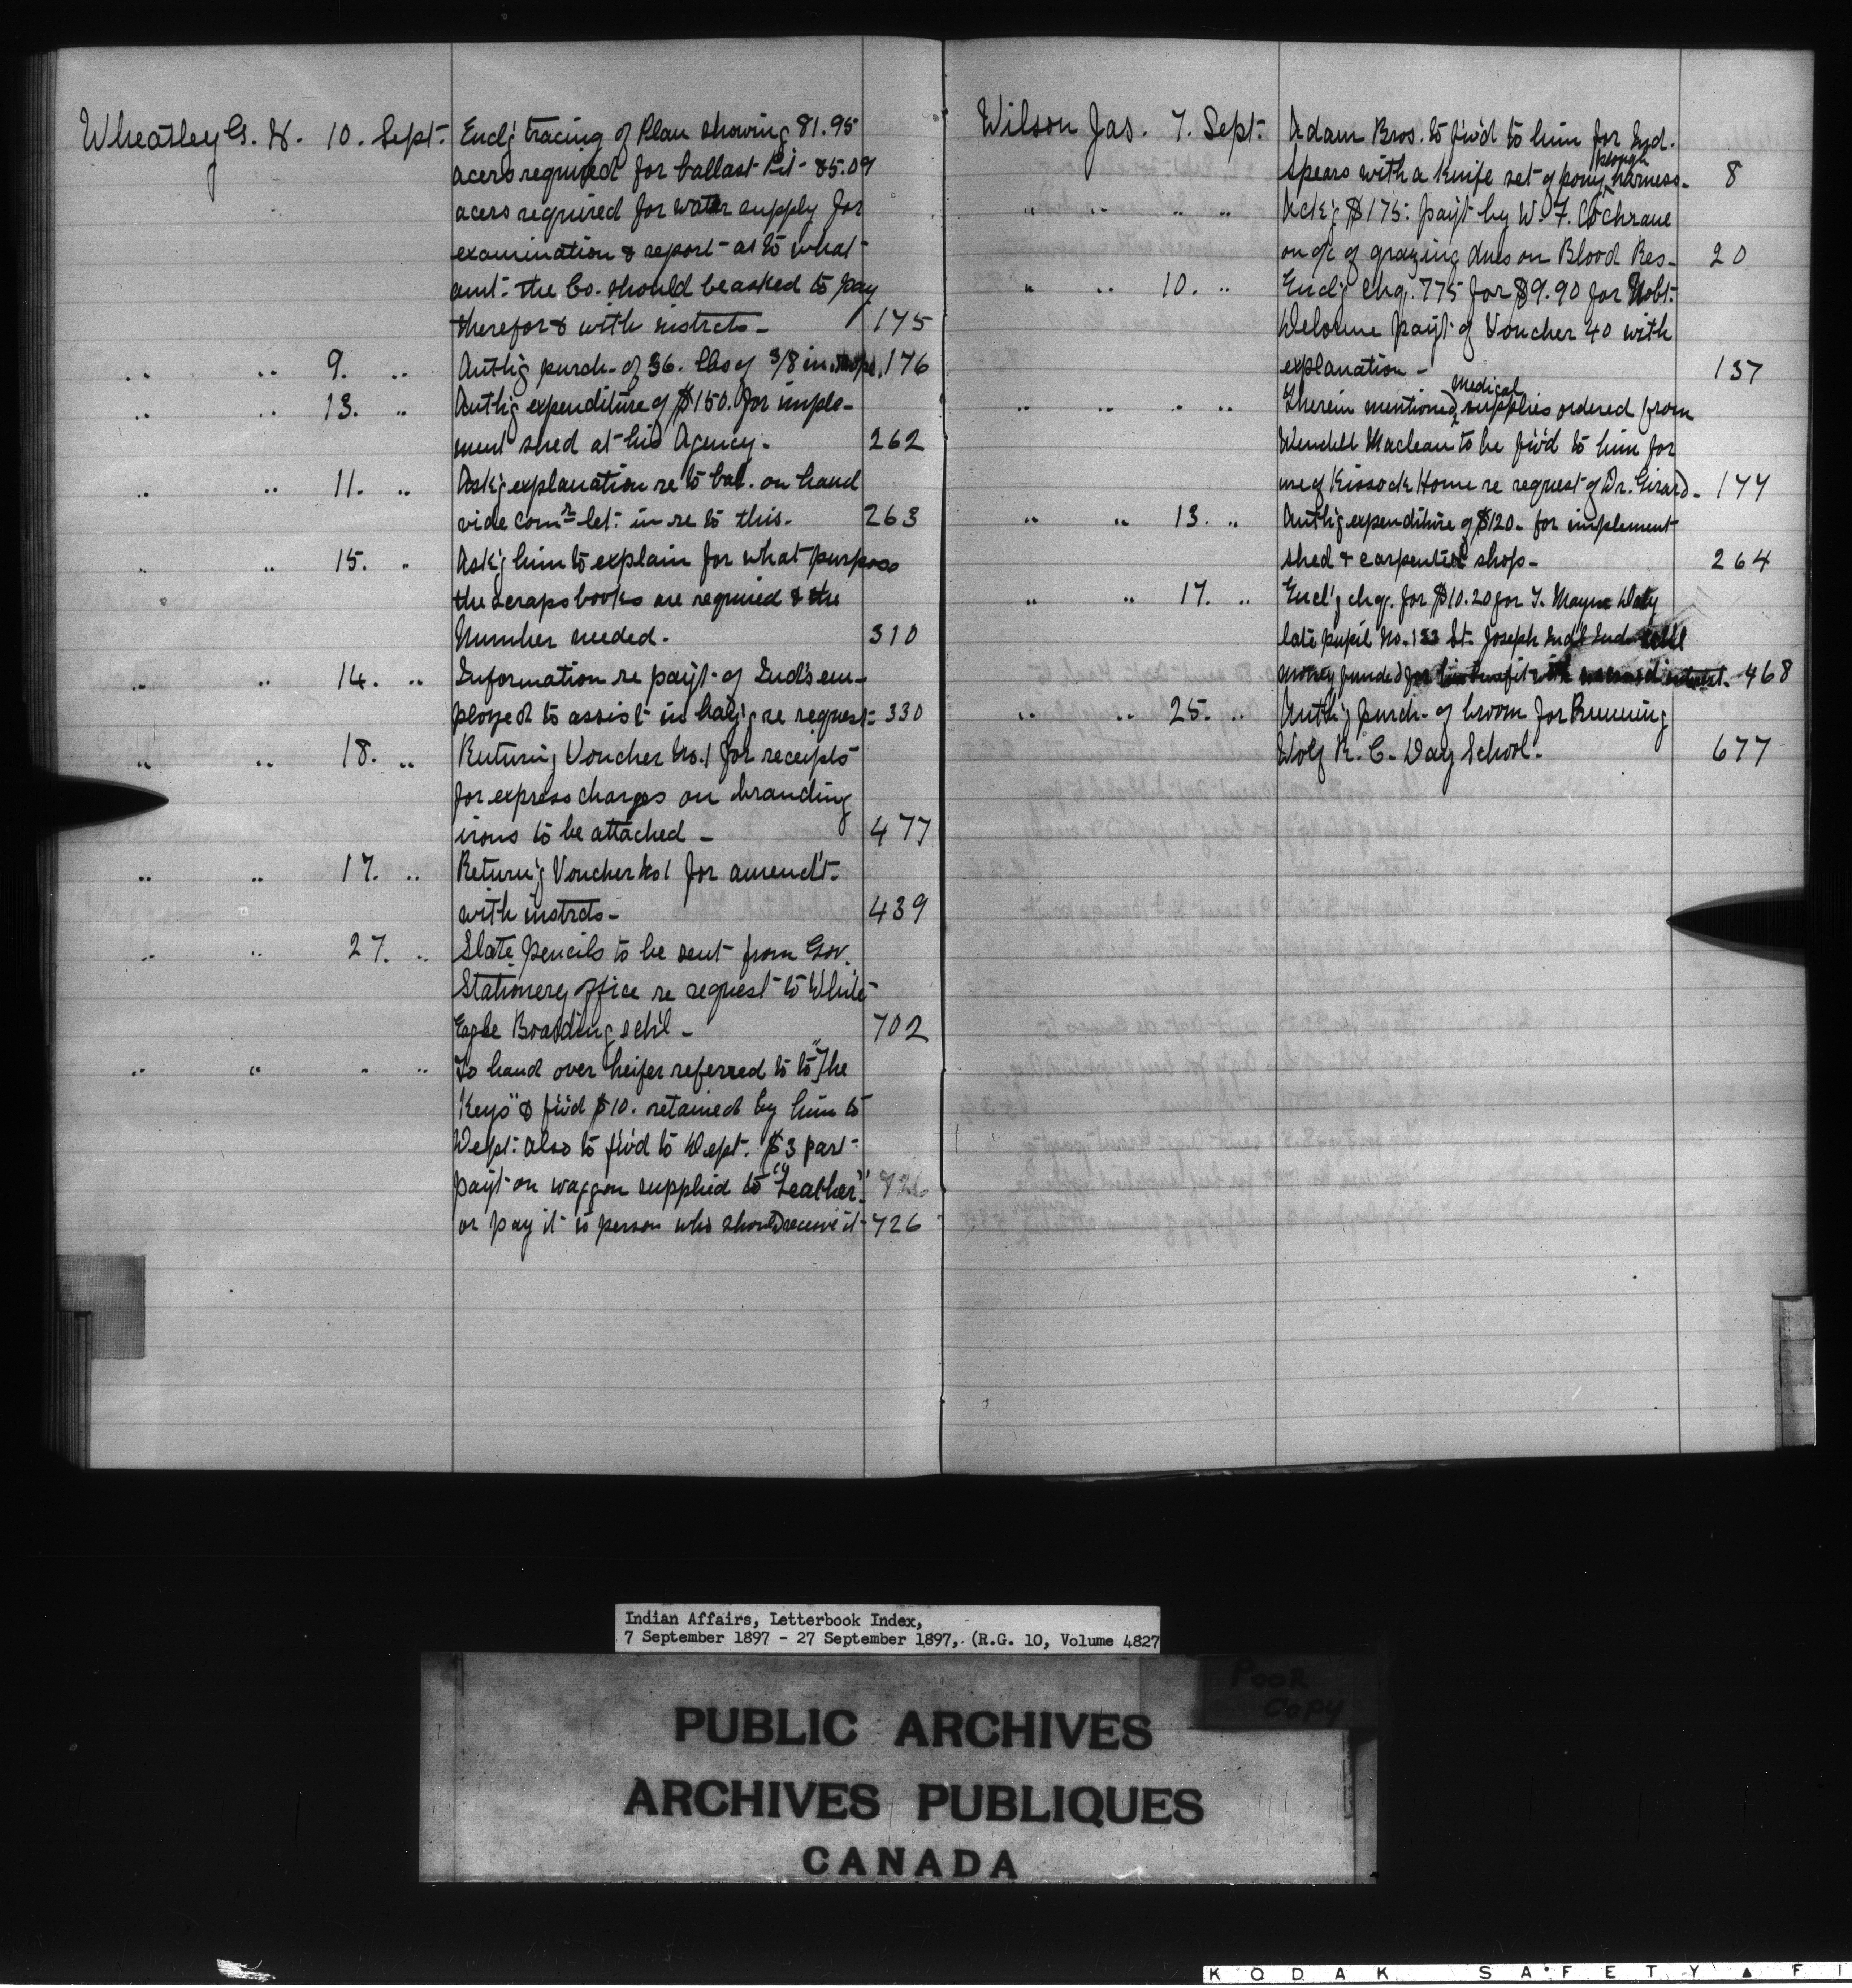 Wheatley G. H. 10. Sept. Encl'g tracing of Plan showing 81.95
acers required for ballast Pit - 85.09
acers required for water supply for
examination & report as to what
amt. the Co. should be asked to pay
therefor & with instrcts - 175
" " 9. " Auth'g purch. of 36. lbs of 3/8 in. rope. 176
" " 13. " Auth'g expenditure of $150. for imple-
ment shed at his Agency. 262
" " 11. " Ask'g explanation re to bal. on hand
vide comr let: in re to this. 263
" " 15. " Ask'g him to explain for what purpose
the scraps books are required & the
Number needed. 310
" " 14. " Information re pay't of Ind's em-
ployed to assist in hay'g re request. 330
" " 18. " Return'g Voucher No. 1 for receipts
for express charges on branding
irons to be attached - 477
" " 17. " Return'g Voucher No 1 for amend't.
with instrcts - 439
" " 27. " Slate pencils to be sent from Gov.
Stationery office re request to White
Eagle Boarding sch'l - 702
" " " " To hand over heifer referred to to "The
Keys" & f'w'd $10. retained by him to
Dept: also to f'w'd to Dept. $3 part
pay't on waggon supplied to "Leather" 726
or pay it to person who should receive it - 726
Wilson Jas. 7. Sept. Adam Bros. to f'w'd to him for Ind.
Spears with a Knife set of pony plough harness - 8
" " " " Ack'g $175. pay't by W. F. Cochrane
on a/c of grazing dues on Blood Res - 20
" " 10. " Encl'g chq. 775 for $9.90 for Robt.
pay't of Voucher 40 with
explanation - 137
" " " " Therein mentioned Medical supplies ordered from
Wendell Maclean to be f'w'd to him for
use of Kissock Home re request of Dr. Girard - 144
" " 13. " Auth'g expenditure of $120. for implement
shed & carpenter shop - 264
" " 17. " Encl'g chq. for $10.20 for T. Mayne Daly
late pupil No. 133 St. Joseph Ind'l Ind. schl
money funded for his benefit with accrued interest. 468
" " 25. " Auth'g purch. of broom for Running
Wolf R. C. Day School. 677
Indian Affairs, Letterbook Index,
7 September 1897 - 27 September 1897, (R.G. 10, Volume 4827
POOR
COPY
PUBLIC ARCHIVES
ARCHIVES PUBLIQUES
CANADA
KODAK SAFETY ▲ FI